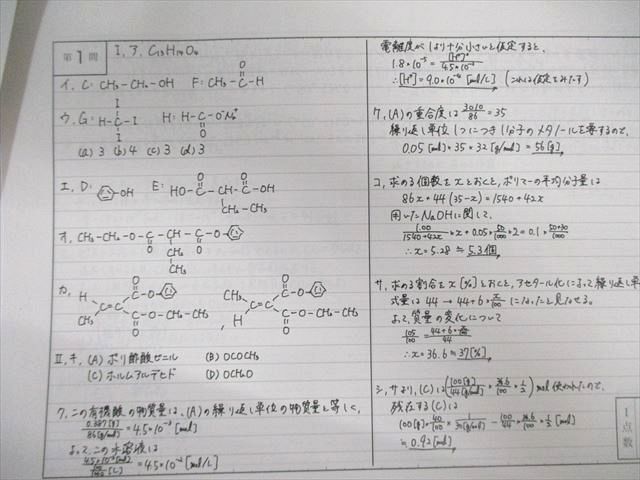 第1問
I, ア. C₁₃H₁₄O₄
イ. C: CH₃-CH₂-OH F: CH₃-C-H
O
ウ. G: H-C-I H: H-C-O⁻Na⁺
I
I
O
(a) 3 (b) 4 (c) 3 (d) 3
エ. D: -OH E: HO-C-CH-C-OH
O
O
CH₂-CH₃
オ. CH₃-CH₂-O-C-CH-C-O-
O
O
CH₂
CH₃
カ. H C=C C-O- CH₃ C=C C-O-
CH₃ C-O-CH₂-CH₃ , H C-O-CH₂-CH₃
II, キ. (A) ポリ酢酸ビニル (B) OCOCH₃
(C) ホルムアルデヒド (D) OCH₂O
ク. この有機酸の物質量は、(A)の繰り返し単位の物質量と等しく、
0.387[g]/86[g/mol] = 4.5×10⁻³[mol]
よって、この水溶液は
= 4.5×10⁻²[mol/L]
電離度が1より十分小さいと仮定すると、
1.8×10⁻⁵ = [H⁺]²/4.5×10⁻²
∴[H⁺] = 9.0×10⁻⁴[mol/L] (これは仮定をみたす)
ケ. (A)の重合度は 3010/86 = 35
繰り返し単位1つにつき1分子のメタノールを要するので、
0.05[mol]×35×32[g/mol] = 56[g]
コ. 求める個数をxとおくと、ポリマーの平均分子量は
86x+44(35-x) = 1540+42x
用いたNaOHに関して、
1.00/1540+42x ×x+0.05×50/1000×2 = 0.1×50+30/1000
∴x = 5.28 ≒ 5.3個
サ. 求める割合をx[%]とおくと、アセタール化によって繰り返し単
式量は 44 → 44+6×x/100 になったと見なせる。
よって、質量の変化について
105/100 = 44+6×x/100 /44
∴x = 36.6 ≒ 37[%]
シ. サより、(C)は(100[g]/44[g/mol] × 36.6/100 × 1/2) mol 使われたので、
残存する(C)は
100[g]×40/100×1/30[g/mol] - 100/44×36.6/100×1/2[mol]
≒ 0.92[mol]
1
点数